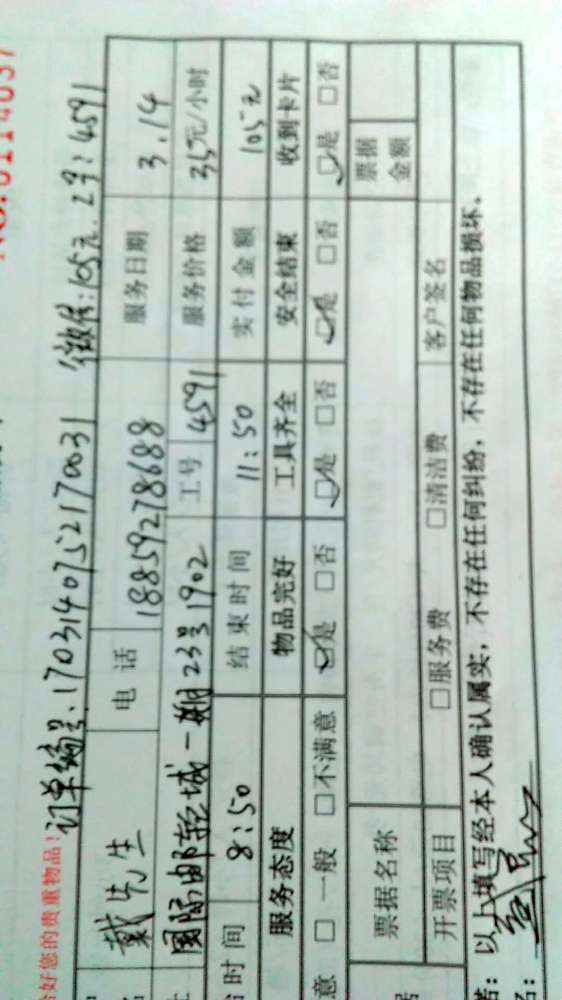 NO.0114037
合好您的贵重物品!
订单编号:1703140752170031 微信:105元. 2号:4591
戴先生 电话 18859278688 服务日期 3.14
国际邮轮城一期23号1902 工号 4591 服务价格 35元/小时
时间 8:50 结束时间 11:50 实付金额 105元
服务态度 物品完好 工具齐全 安全结束 收到卡片
意 □一般 □不满意 ☑是 □否 ☑是 □否 ☑是 □否 ☑是 □否
票据名称 票据金额
开票项目 □服务费 □清洁费 客户签名
以上填写经本人确认属实,不存在任何纠纷,不存在任何物品损坏。
名: